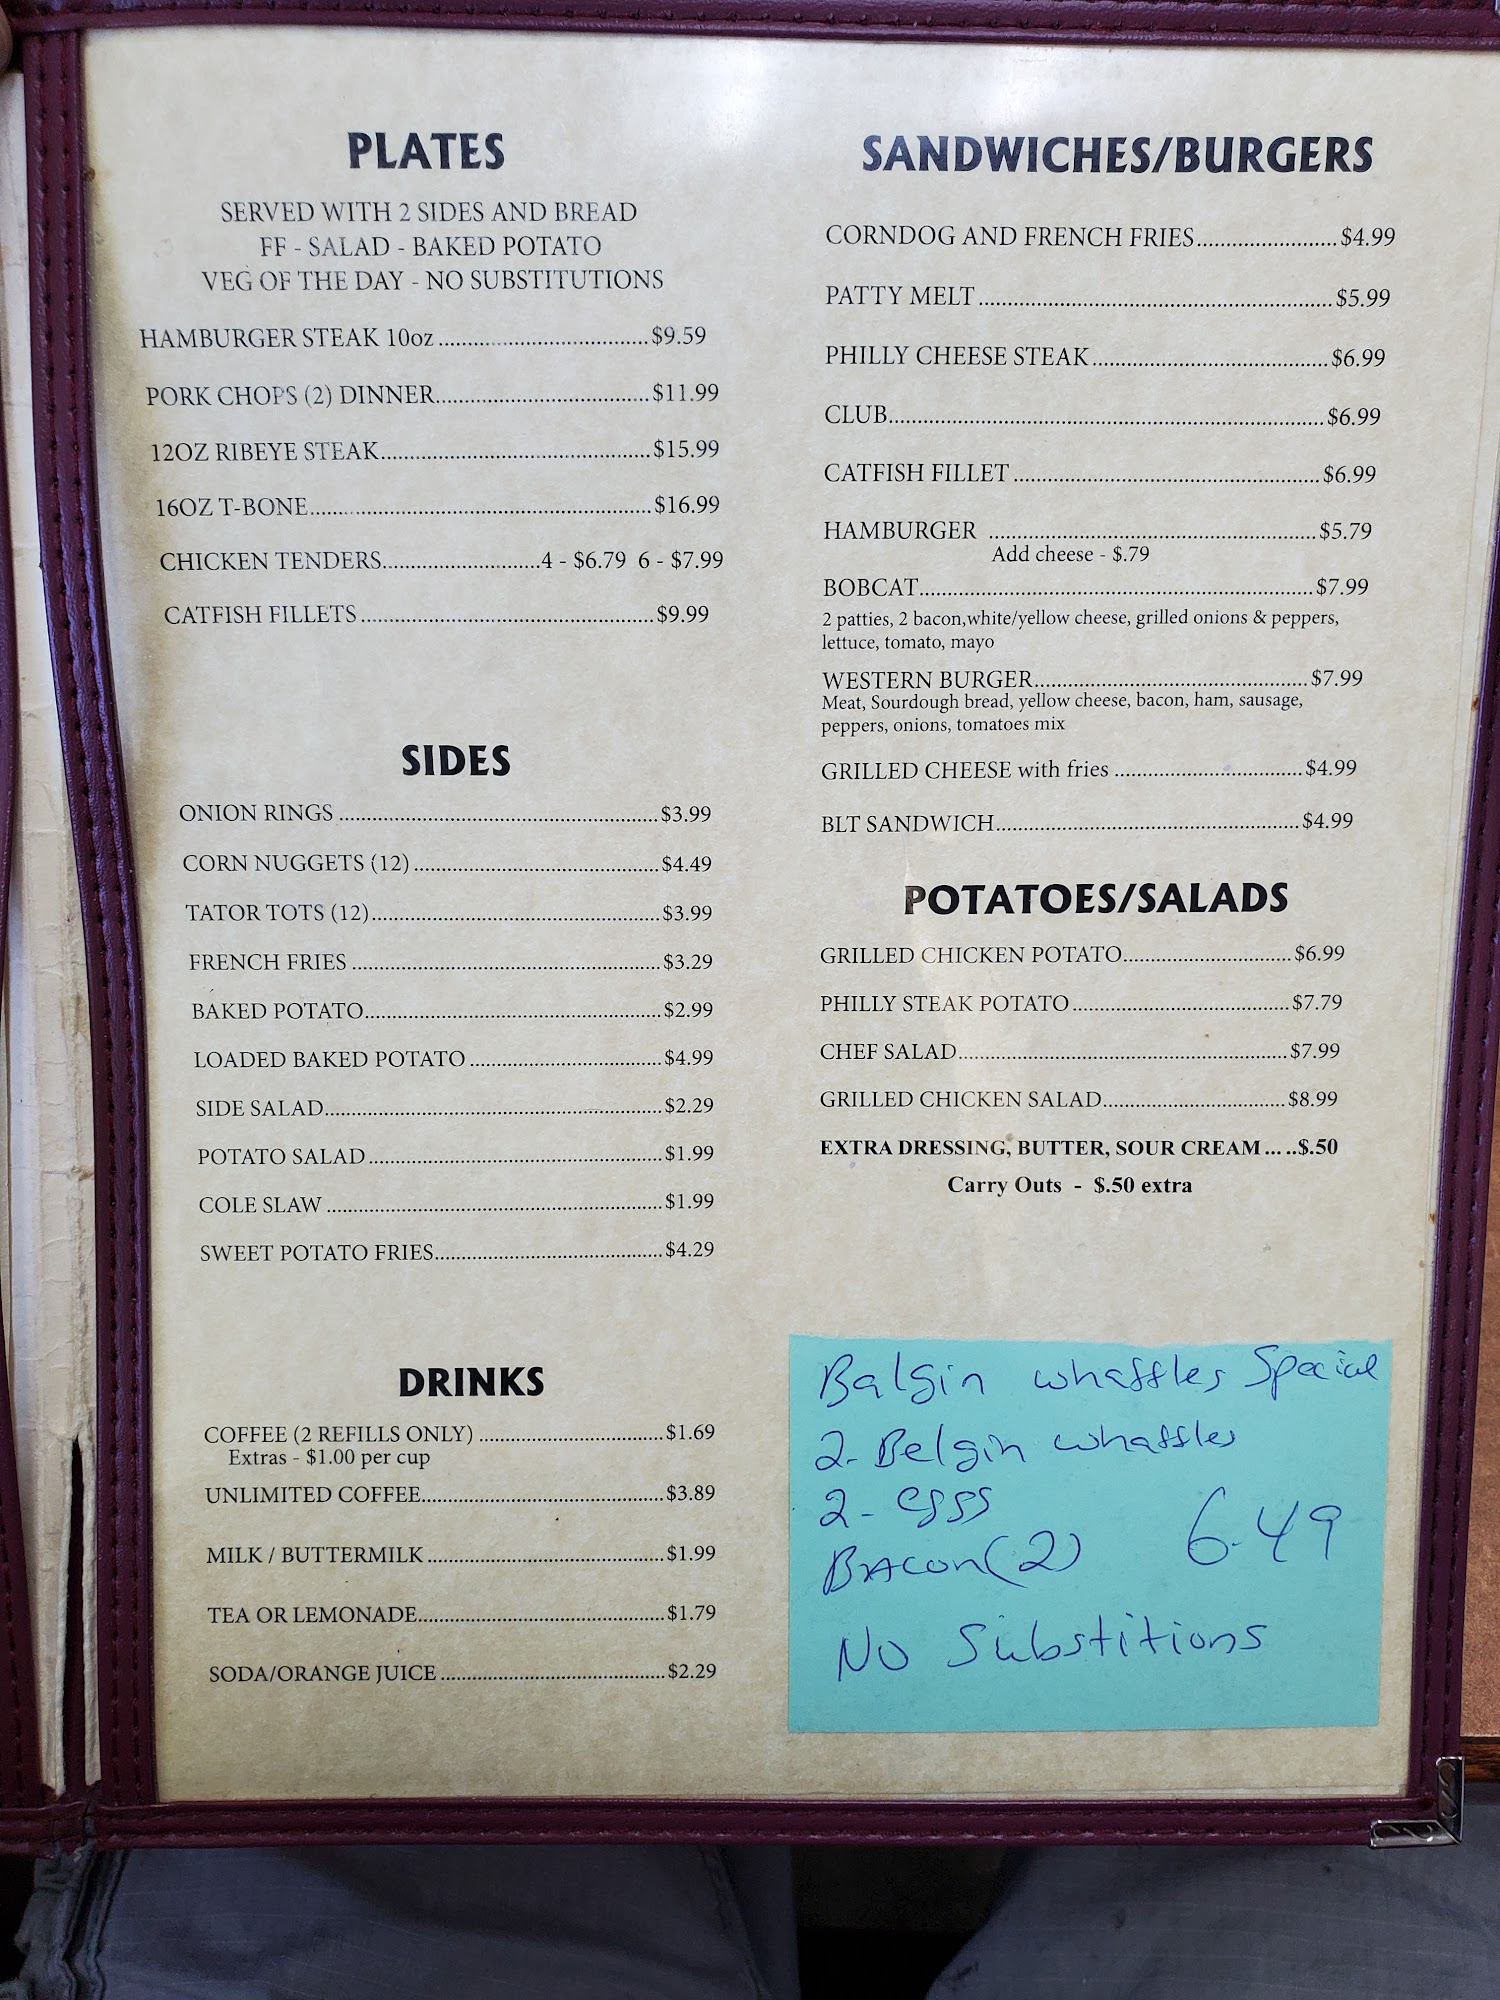 PLATES
SERVED WITH 2 SIDES AND BREAD
FF - SALAD - BAKED POTATO
VEG OF THE DAY - NO SUBSTITUTIONS
HAMBURGER STEAK 10oz ..... $9.59
PORK CHOPS (2) DINNER ..... $11.99
12OZ RIBEYE STEAK ..... $15.99
16OZ T-BONE ..... $16.99
CHICKEN TENDERS ..... 4 - $6.79 6 - $7.99
CATFISH FILLETS ..... $9.99
SIDES
ONION RINGS ..... $3.99
CORN NUGGETS (12) ..... $4.49
TATOR TOTS (12) ..... $3.99
FRENCH FRIES ..... $3.29
BAKED POTATO ..... $2.99
LOADED BAKED POTATO ..... $4.99
SIDE SALAD ..... $2.29
POTATO SALAD ..... $1.99
COLE SLAW ..... $1.99
SWEET POTATO FRIES ..... $4.29
DRINKS
COFFEE (2 REFILLS ONLY) ..... $1.69
Extras - $1.00 per cup
UNLIMITED COFFEE ..... $3.89
MILK / BUTTERMILK ..... $1.99
TEA OR LEMONADE ..... $1.79
SODA/ORANGE JUICE ..... $2.29
SANDWICHES/BURGERS
CORNDOG AND FRENCH FRIES ..... $4.99
PATTY MELT ..... $5.99
PHILLY CHEESE STEAK ..... $6.99
CLUB ..... $6.99
CATFISH FILLET ..... $6.99
HAMBURGER ..... $5.79
Add cheese - $.79
BOBCAT ..... $7.99
2 patties, 2 bacon,white/yellow cheese, grilled onions & peppers,
lettuce, tomato, mayo
WESTERN BURGER ..... $7.99
Meat, Sourdough bread, yellow cheese, bacon, ham, sausage,
peppers, onions, tomatoes mix
GRILLED CHEESE with fries ..... $4.99
BLT SANDWICH ..... $4.99
POTATOES/SALADS
GRILLED CHICKEN POTATO ..... $6.99
PHILLY STEAK POTATO ..... $7.79
CHEF SALAD ..... $7.99
GRILLED CHICKEN SALAD ..... $8.99
EXTRA DRESSING, BUTTER, SOUR CREAM ..... $.50
Carry Outs - $.50 extra
Balgin whaffles Special
2- Belgin whaffles
2- eggs
BAcon(2) 6.49
No Substitions